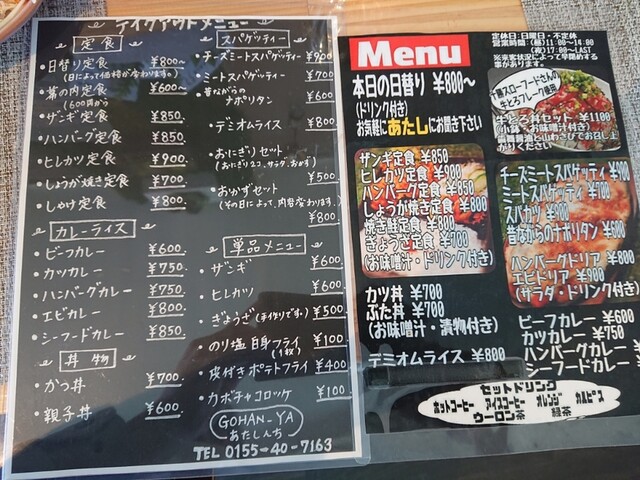 テイクアウトメニュー
定食
・日替り定食 ¥800~
(日によって価格が変わります。)
・幕の内定食 ¥600~
(600円から)
・ザンギ定食 ¥850.
・ハンバーグ定食 ¥850.
・ヒレカツ定食 ¥900.
・しょうが焼き定食 ¥700
・しゃけ定食 ¥800.
カレーライス
・ビーフカレー ¥600.
・カツカレー ¥750.
・ハンバーグカレー ¥750.
・エビカレー ¥800.
・シーフードカレー ¥850.
丼物
・かつ丼 ¥700.
・親子丼 ¥600.
スパゲッティー
・チーズミートスパゲッティー ¥900
・ミートスパゲッティー ¥700
・昔ながらの
ナポリタン ¥600
・デミオムライス ¥800
・おにぎりセット
(おにぎり2コ、サラダ、おかず)
¥500
・おかずセット
(その日によって、内容変わります。)
¥800
単品メニュー
・ザンギ ¥600
・ヒレカツ ¥600
・ぎょうざ(手作りです。) ¥500
・のり塩 白身フライ ¥100
(1枚)
・皮付きポテトフライ ¥400
・カボチャコロッケ ¥100
GOHAN-YA
あたしんち
TEL 0155-40-7163
Menu
定休日:日曜日・不定休
営業時間:(昼)11:00~14:00
(夜)17:00~LAST
※来客状況によって早閉めする
事があります。
本日の日替り ¥800~
(ドリンク付き)
お気軽にあたしにお聞き下さい
十勝スローフードさんの
牛とろフレーク使用
牛とろ丼セット ¥1100
(小鉢・お味噌汁付き)
ザンギ定食 ¥850
ヒレカツ定食 ¥900
ハンバーグ定食 ¥850
しょうが焼き定食 ¥700
焼き鮭定食 ¥800
ぎょうざ定食 ¥700
(お味噌汁・ドリンク付き)
カツ丼 ¥700
ぶた丼 ¥700
(お味噌汁・漬物付き)
デミオムライス ¥800
チーズミートスパゲッティ ¥900
ミートスパゲッティ ¥700
スパカツ ¥900
昔ながらのナポリタン ¥600
ハンバーグドリア ¥800
エビドリア ¥900
(サラダ・ドリンク付き)
ビーフカレー ¥600
カツカレー ¥750
ハンバーグカレー
シーフードカレー
セットドリンク
ホットコーヒー アイスコーヒー オレンジ カルピス
ウーロン茶 緑茶